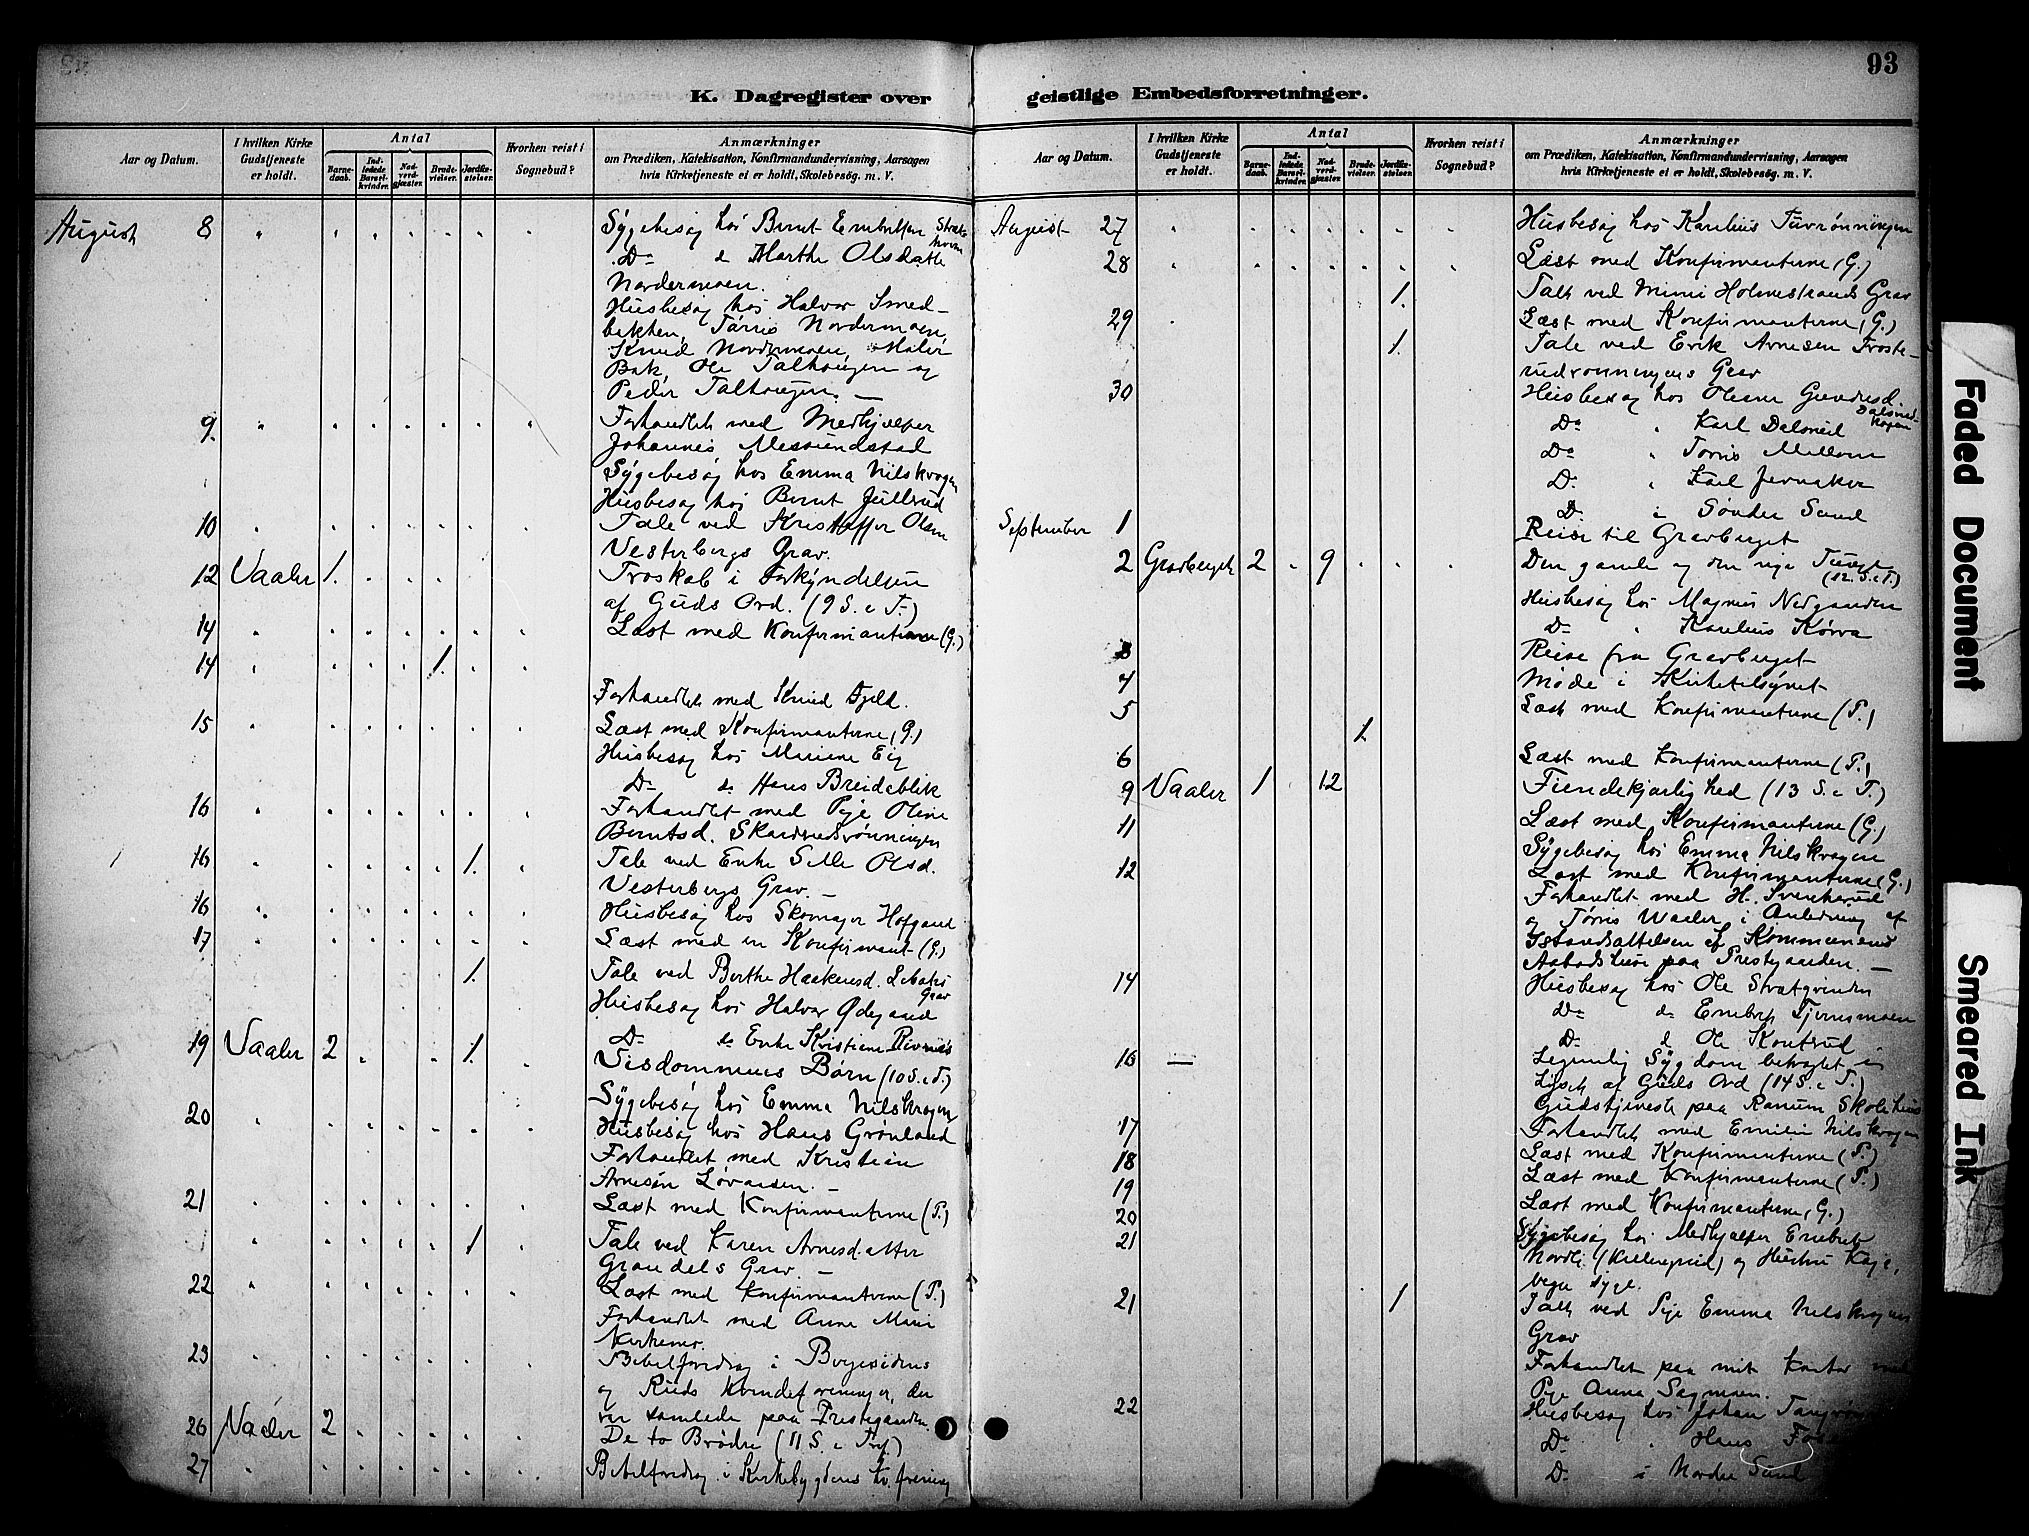 93
K. Dagregister over geistlige Embedsforretninger.
Aar og Datum.
I hvilken Kirke Gudstjeneste er holdt.
Antal
Barnedaab.
Indledede Barselkvinder.
Nadverdgjæster.
Brudevielser.
Jordfæstelser.
Hvorhen reist i Sognebud?
Anmærkninger
om Prædiken, Katekisation, Konfirmandundervisning, Aarsagen
hvis Kirketjeneste ei er holdt, Skolebesøg. m. V.
August 8 Sygebesøg hos Bernt Embretsen
Do do Marthe Olsdatter
Nordermoen.
Husbesøg hos Halvor Smed-
bekken, Tørris Nordermoen,
Knud Nordermoen, Maler
Bak, Ole Talhaugen og
Peder Talhaugen. —
9. Forhandlet med Medhjælper
Johannes
Sygebesøg hos Emma Nilskrogen
Husbesøg hos Bernt Jullsrud
10 Tale ved Kristoffer Olsen
Vesterbergs Grav.
12 Vaaler 1. Troskab i Forkyndelsen
af Guds Ord. (9 S. e T.)
14 Læst med Konfirmanterne (G.)
14 1.
Forhandlet med Knud
15 Læst med Konfirmanterne (G.)
Husbesøg hos Mariene Eig
Do do Hans Breideblik
16 Forhandlet med Pige Oline
Berntsd. Skardrudsrønningen
16 1. Tale ved Enke Sille Olsd.
Vesterbergs Grav. —
16 Husbesøg hos Skomager Hofgaard
17 Læst med en Konfirmant (G.)
1. Tale ved Berthe Haakensd.
Grav
Husbesøg hos Halvor Ødegaard
Do do Enke Kristiene
19 Vaaler 2 1. Visdommens Børn (10 S. e T.)
Sygebesøg hos Emma Nilskrogen
20 Husbesøg hos Hans Grønland
Forhandlet med Kristian
Arnesen Løvaasen. —
21 Læst med Konfirmanterne (P.)
1 Tale ved Karen Arnesdatter
Grandels Grav. —
22 Læst med Konfirmanterne (P.)
Forhandlet med Anne Marie
23 Bibelforedrag i
og Ruds Kvindeforeninger, der
var samlede paa Prestegaarden.
26 Vaaler 2 De to Brødre (11 S. e Tref.)
27 Bibelforedrag i Kirkebygdens Kv.forening
August 27 Husbesøg hos Karelius Tuvrønningen
28 Læst med Konfirmanterne (G.)
1. Tale ved Mimi Holmestrands Grav
29 Læst med Konfirmanterne (G.)
1. Tale ved Erik Arnesen Froste-
rudrønningens Grav
30 Husbesøg hos Olea Gundersd.
Do " Karl Dalsveid
Do " Tørris Mellem
Do " Karl Jernaker
Do i Søndre Sund
September 1 Reise til Gravberget
2 Gravberget 2 9 Den gamle og den nye Tunge
(12. S. e T.)
Husbesøg hos Magnus Nedgaarden
Do " Karelius Kørra
3 Reise fra Gravberget
4 Møde i Kirketilsynet
5 Læst med Konfirmanterne (P.)
1
6 Læst med Konfirmanterne (P.)
9 Vaaler 1 12 Fiendekjærlighed (13 S. e T.)
11 Læst med Konfirmanterne (G.)
Sygebesøg hos Emma Nilskrogen
12 Læst med Konfirmanterne (G.)
Forhandlet med H. Svenkerud
og Tørris Vaaler i Anledning af
Istandsættelsen af Kommunens
paa Prestgaarden. —
14 Husbesøg hos Ole Strætgvinden
Do do Embret Tjernsmoen
Do do Ole Kontrud
16 — Legemlig Sygdom betragtet i
Lyset af Guds Ord (14 S. e T.)
Gudstjeneste paa Ranum Skolehus
17 Forhandlet med Emilie Nilskrogen
18 Læst med Konfirmanterne (P.)
19 Læst med Konfirmanterne (P.)
20 Læst med Konfirmanterne (G.)
21 Sygebesøg hos Medhjælper Embret
Nordli (Kellerprud) og Hustru Kaje,
begge syge.
21 1 Tale ved Pige Emma Nilskrogens
Grav
Forhandlet paa mit Kontor med
Pige Anna Sagmoen.
22 Husbesøg hos Johan
Do " Hans
Do i Nordre Sund
Faded Document
Smeared Ink